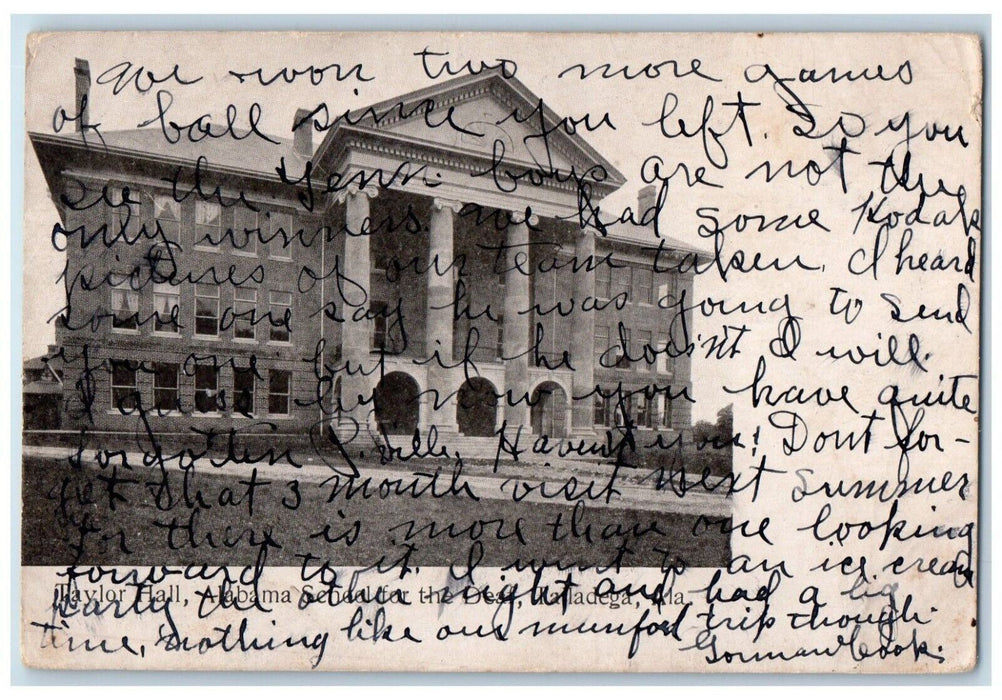 We won two more games
of ball since you left. So you
see the Tenn. boys are not the
only winners. We had some Kodak
pictures of our team taken. I heard
some one say he was going to send
you one but if he does'nt I will.
I guess by now you have quite
forgotten P.ville. Havent you? Dont for-
get that 3 month visit next summer
for there is more than one looking
forward to it. I went to an ice cream
Taylor Hall, Alabama School for the Deaf, Talladega, Ala.
party the other night and had a big
time, nothing like our munford trip though
Gorman Cook.